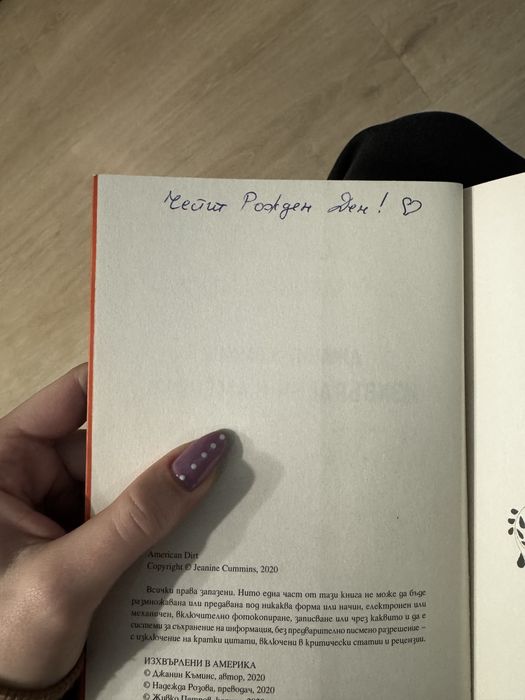 Честит Рожден Ден! ♡
American Dirt
Copyright © Jeanine Cummins, 2020
Всички права запазени. Нито една част от тази книга не може да бъде
размножавана или предавана под никаква форма или начин, електронен или
механичен, включително фотокопиране, записване или чрез каквито и да е
системи за съхранение на информация, без предварително писмено разрешение –
с изключение на кратки цитати, включени в критически статии и рецензии.
ИЗХВЪРЛЕНИ В АМЕРИКА
© Джанин Къминс, автор, 2020
© Надежда Розова, преводач, 2020
© Живко Петров,